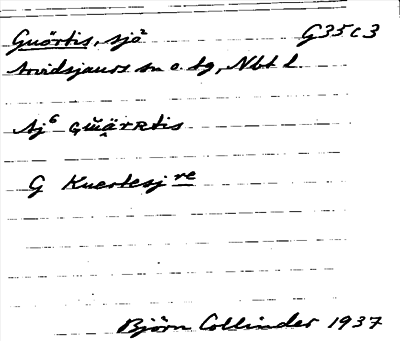 Guörtis, sjö² G35c3
Arvidsjaurs sn o. tg, Nbt l
Aj⁶ GŭärRtis
G Kuertesj re
Björn Collinder 1937